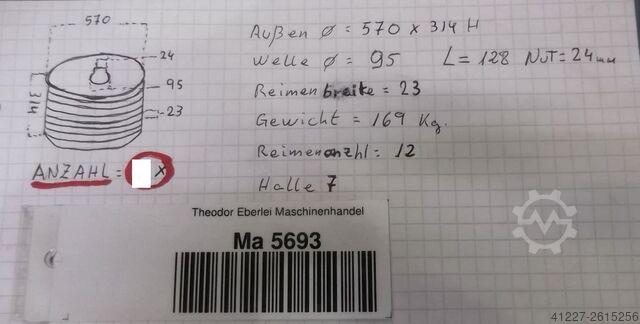 570
24
95
23
314
ANZAHL = X
Außen Ø = 570 x 314 H
Welle Ø = 95 L = 128 NUT = 24mm
Reimenbreite = 23
Gewicht = 169 Kg.
Reimenanzhl = 12
Halle 7
Theodor Eberlei Maschinenhandel
Ma 5693
41227-2615256